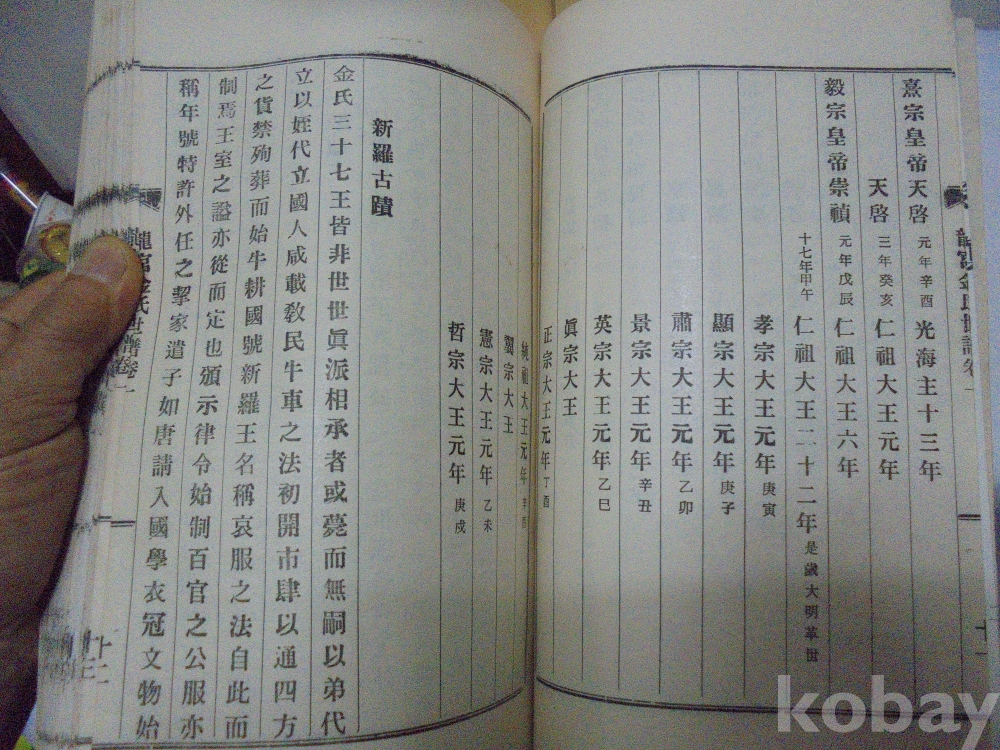 熹宗皇帝天啓 元年辛酉 光海主十三年
天啓 三年癸亥 仁祖大王元年
毅宗皇帝崇禎 元年戊辰 仁祖大王六年
十七年甲午 仁祖大王二十二年 是歲大明革世
孝宗大王元年 庚寅
顯宗大王元年 庚子
肅宗大王元年 乙卯
景宗大王元年 辛丑
英宗大王元年 乙巳
眞宗大王
正宗大王元年 丁酉
純祖大王元年 辛酉
翼宗大王
憲宗大王元年 乙未
哲宗大王元年 庚戌
新羅古蹟
金氏三十七王皆非世世眞派相承者或薨而無嗣以弟代
立以姪代立國人咸載敎民牛車之法初開市肆以通四方
之貨禁殉葬而始牛耕國號新羅王名稱哀服之法自此而
制焉王室之謚亦從而定也頒示律令始制百官之公服亦
稱年號特許外任之挈家遣子如唐請入國學衣冠文物始
龍宮金氏世譜卷一
十二
龍宮金氏世譜卷一
十一
kobay